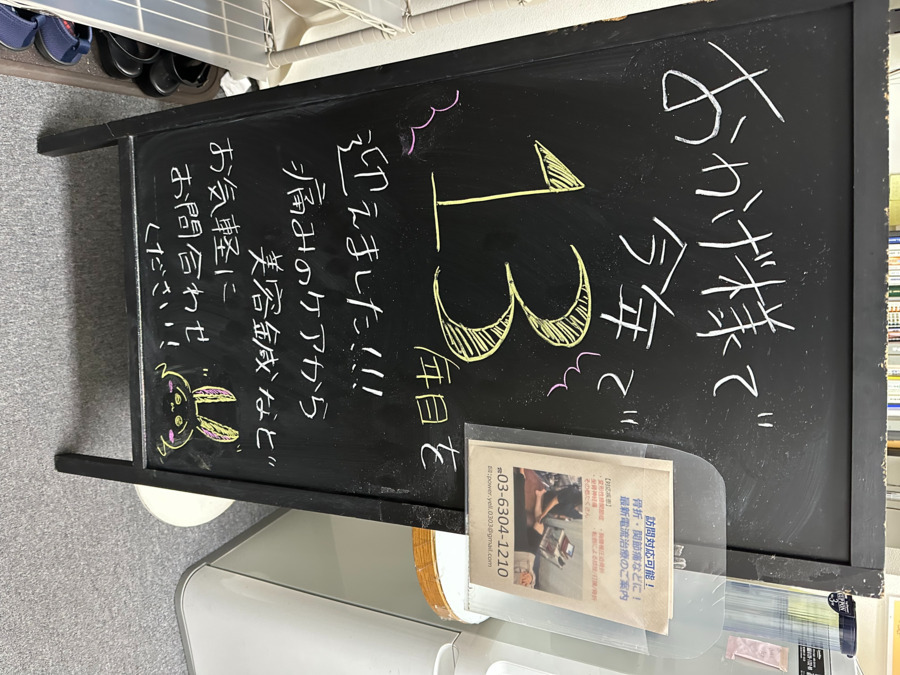 おかげ様で
今年で
13年目を
迎えました!!!
痛みのケアから
美容鍼など
お気軽に
お問合わせ
ください!!
訪問対応可能!
骨折・関節痛などに!
最新電流治療のご案内
☎03-6304-1210
✉:power.yell.0303@gmail.com